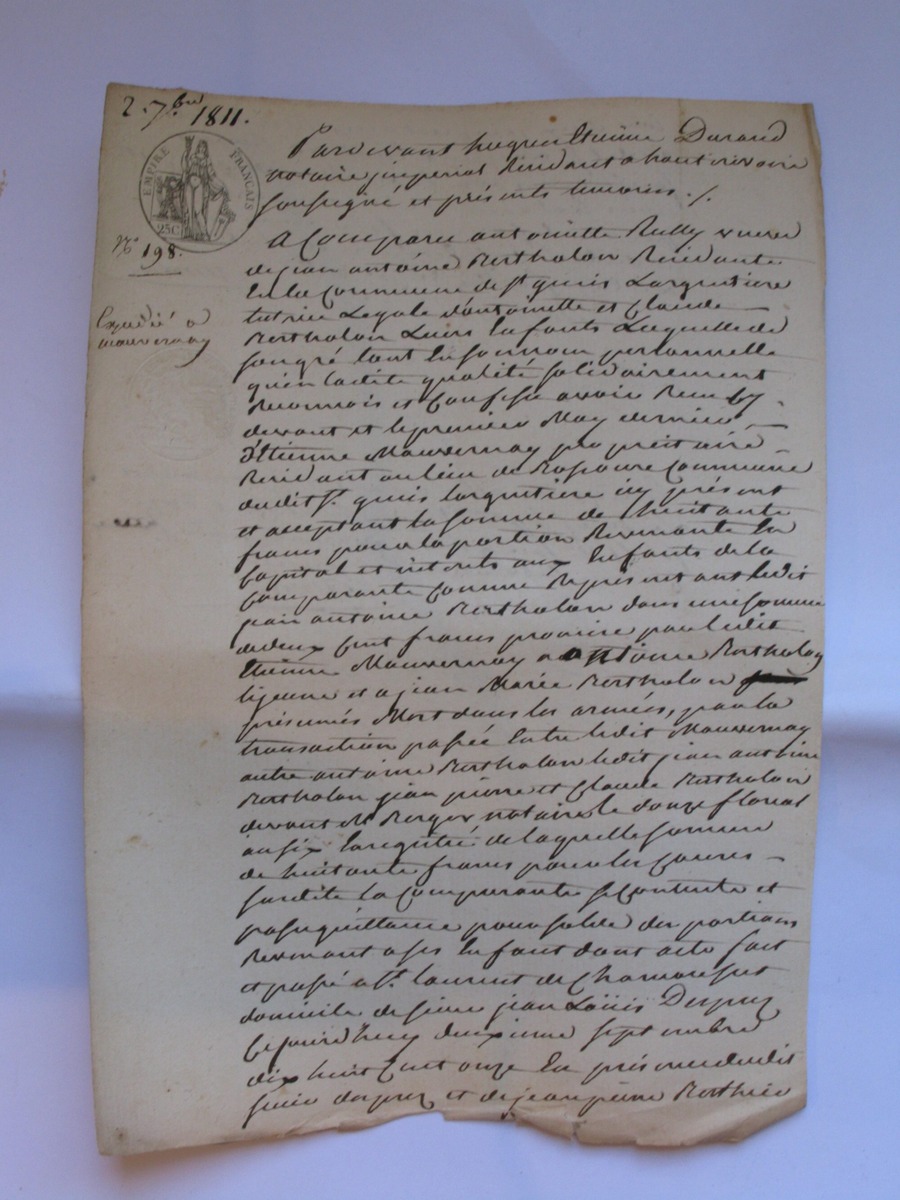 2. 7.bre 1811.
EMPIRE FRANÇAIS
25C
No 198.
Expedié a
mauvernay
Pardevant hugues Etienne Durand
notaire imperial Residant a haute rivoire
soussigné et présents temoins ./.
A Comparu antoinette Rully veuve
de jean antoine Bertholon Residante
En la Commune de st genis Largentiere
tutrice Legale d'antoinette et Claude
Bertholon Leurs Enfants Laquelle de
son gré tant En son nom personnelle
qu'en ladite qualité solidairement
Reconnois et Confesse avoir Recu Cy
devant et le premier May dernier
d'Etienne Mauvernay propriétaire
Residant au lieu de Commune
dudit st genis largentiere icy présent
et acceptant la somme de huitante
francs pour la portion Revenante En
Capital et interets aux Enfants de la
Comparante Comme Représentant ledit
jean antoine Bertholon dans une somme
de deux Cent francs promise par ledit
Etienne Mauvernay a antoine Bertholon
lejeune et a jean Marie Bertholon
présumés Mort dans les armées, par la
transaction passée Entre ledit Mauvernay
autre antoine Bertholon ledit jean antoine
Bertholon jean pierre et Claude Bertholon
devant Me notaire le douze floreal
an six Enregistré de laquelle somme
de huitante francs pour les Causes
susdite la Comparante se Contente et
passe quittance pour solde des portions
Revenant a ses Enfant dont acte fait
et passé a st. laurent de Chamousset
domicile de sieur jean Loüis Desprez
Cejourd'huy deuxieme septembre
dix huit Cent onze En présence dudit
sieur desprez et de jean pierre Berthier